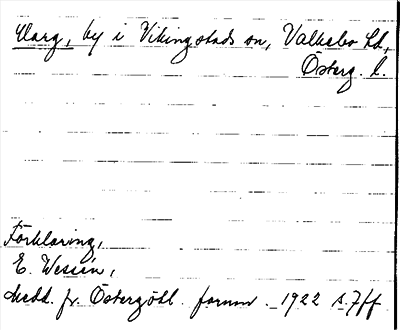 Varg, by i Vikingstads sn, Valkebo hd,
Österg. l.
Förklaring,
E. Wessén,
Medd. fr. Östergötl. fornm. 1922 s. 7 ff